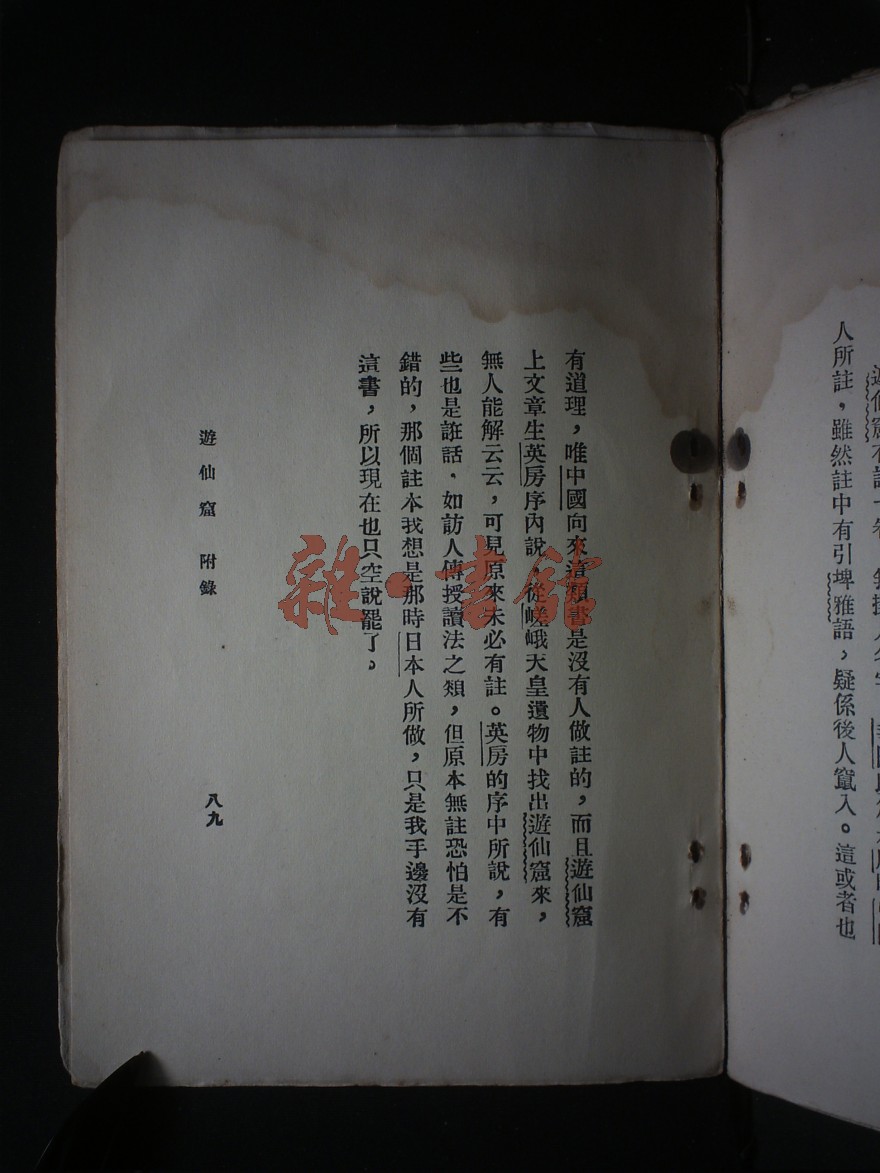 人所註，雖然註中有引埤雅語，疑係後人竄入。這或者也
有道理，唯中國向來這類書是沒有人做註的，而且遊仙窟
上文章生英房序內說，從嵯峨天皇遺物中找出遊仙窟來，
無人能解云云，可見原來未必有註。英房的序中所說，有
些也是誑話．如訪人傳授讀法之類，但原本無註恐怕是不
錯的，那個註本我想是那時日本人所做，只是我手邊沒有
這書，所以現在也只空說罷了。
遊仙窟 附錄
八九
雜·書館